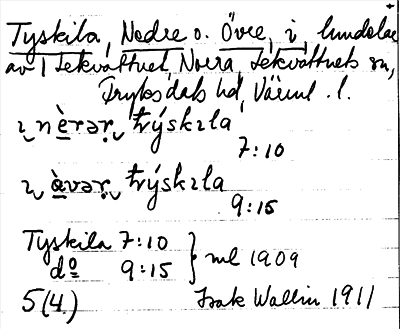 Tyskila, Nedre o. Övre, i hundelar
av 1 Tekvattnet, Norra, Tekvattnets sn,
Fryksdals hd, Värml. l.
ı n è̲rər ̣ trýskıla
7:10
ı à̲vər ̣ trýskıla
9:15
Tyskila 7:10
do 9:15 } ml 1909
5(4) Isak Wallin 1911